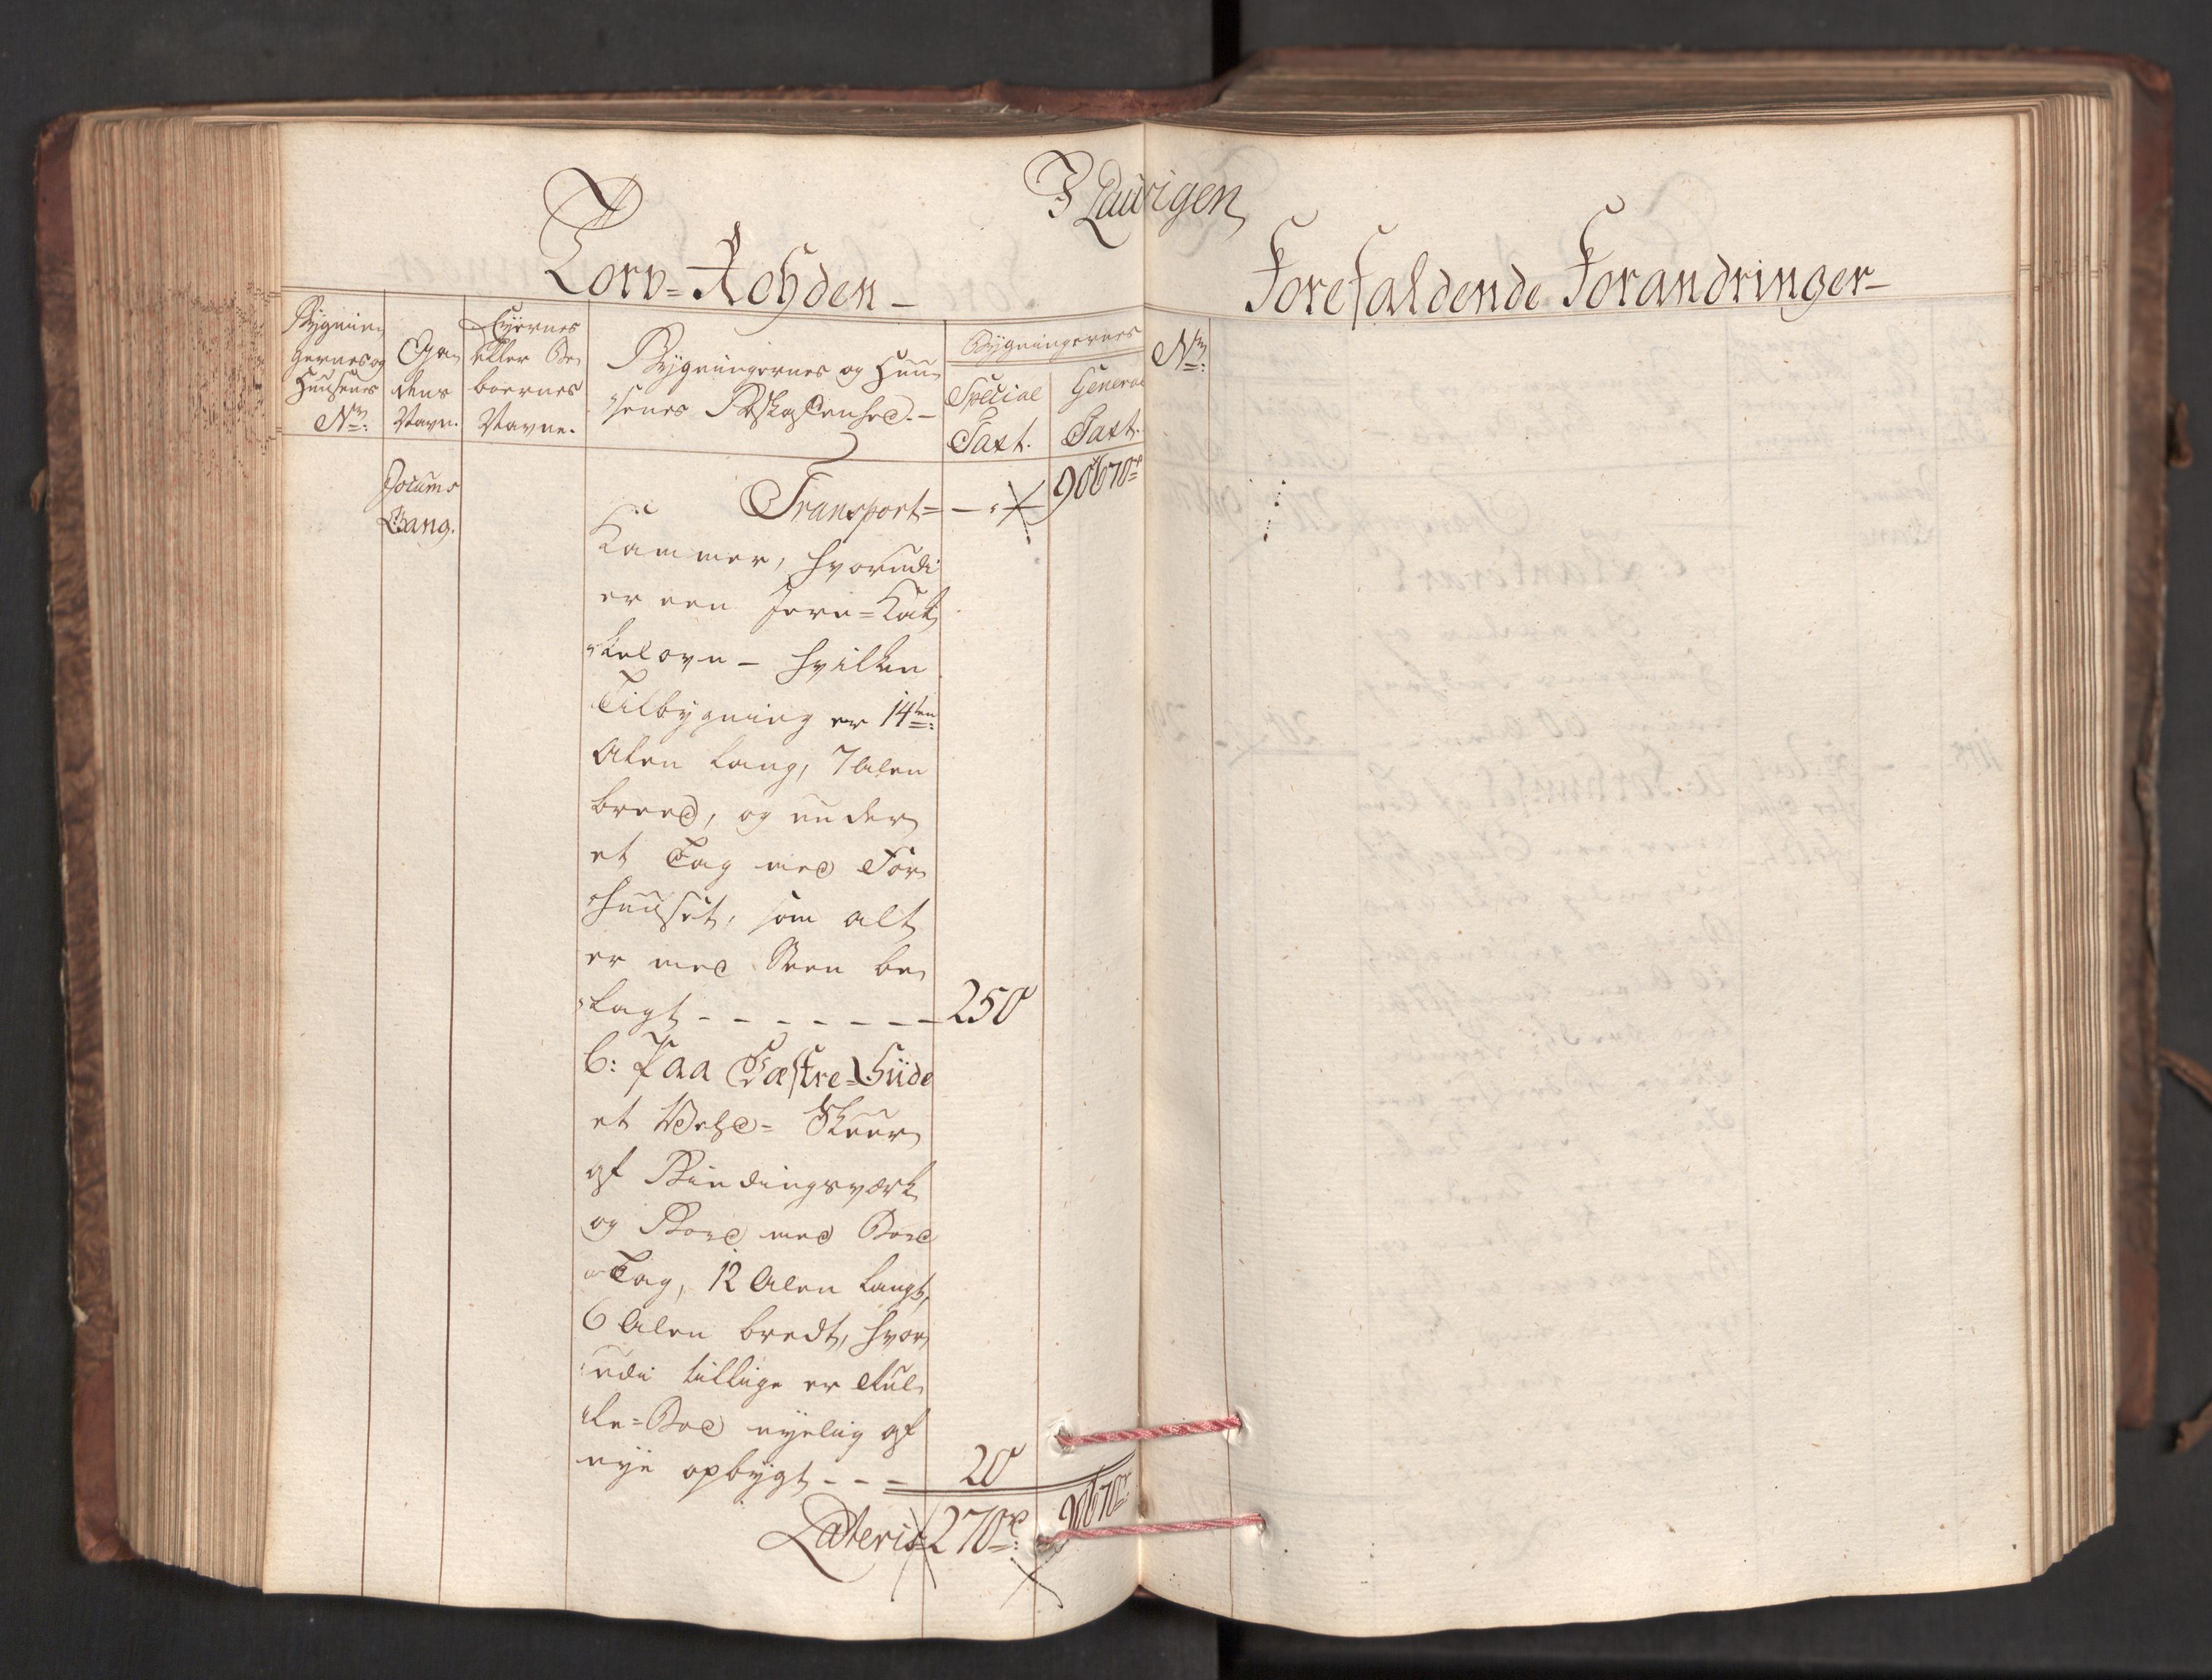 I Laurvigen
Torv-Rohden-
Forefaldende Forandringer-
Bygnin-
gernes og
Huusenes
No:
Ga-
dens
Navn.
Eyernes
eller Be-
boernes
Navne.
Bygningernes og Huu-
senes Beskaffenhed.-
Bygningernes
Special
Taxt.
General
Taxt.
No:
Jocums
Gang.
Transport= — 90670
Kammer, hvorudi
er een Jern=Kak-
kelovn - hvilken
Tilbygning er 14ten
Alen lang, 7 Alen
breed, og under
et Tag med For-
huuset, som alt
er med Steen be-
lagt - - - - - - - 250
C: Paa Væstre-Siide
et Vehd- Skuur
af Bindingsværk
og Bord med Bord
Tag, 12 Alen langt,
6 Alen bredt, hvor-
udi tillige er Rul-
le=Bod nyelig af
nye opbygt - - - 20
Lateris 270 90670